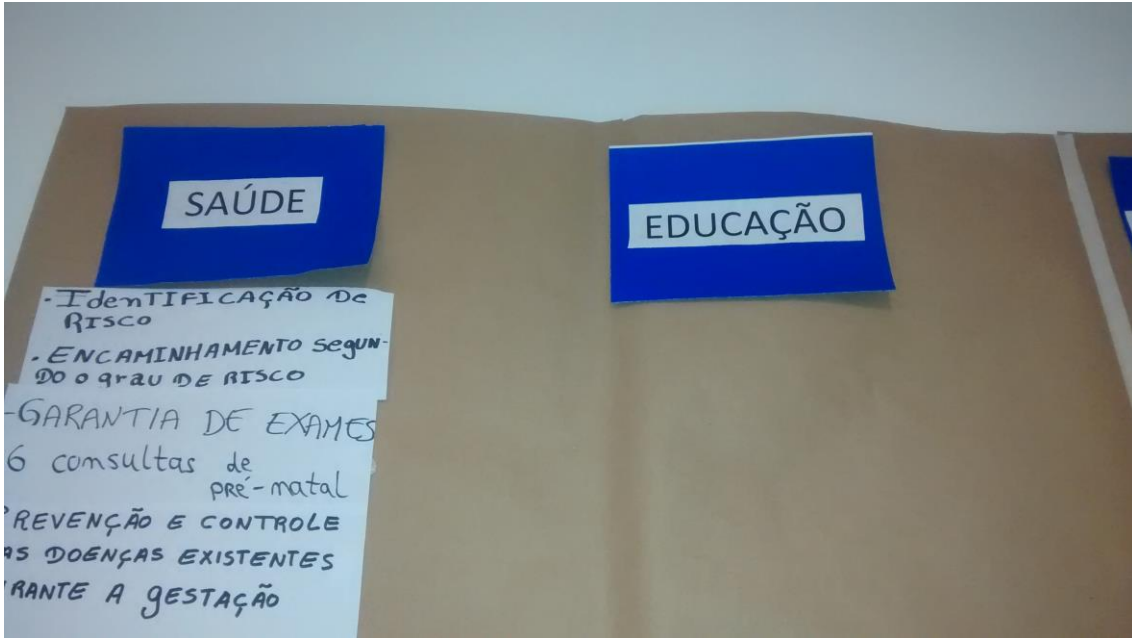 SAÚDE
EDUCAÇÃO
· IdenTIFICAÇÃO De
RISCO
· ENCAMINHAMENTO segun-
DO o grau DE RISCO
-GARANTIA DE EXAMES
6 consultas de
pré-natal
PREVENÇÃO E CONTROLE
AS DOENÇAS EXISTENTES
RANTE A gESTAÇÃO